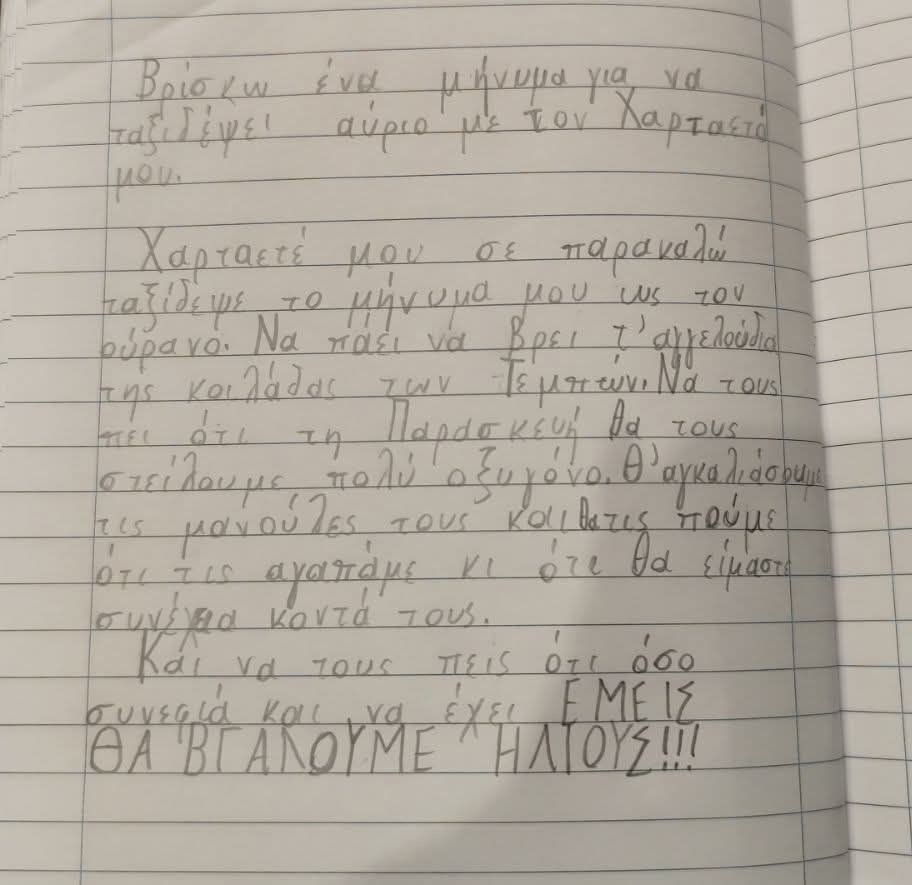 Βρίσκω ένα μήνυμα για να
ταξιδέψει αύριο με τον Χαρταετό
μου.
Χαρταετέ μου σε παρακαλώ
ταξίδεψε το μήνυμα μου ως τον
ούρανο. Να πάει να βρει τ' αγγελούδια
της κοιλάδας των Τέμπτών. Να τους
πει ότι τη Παρασκευή θα τους
στείλουμε πολύ οξυγόνο. Θ' αγκαλιάσουμε
τις μανούλες τους και θα τις πούμε
ότι τις αγαπάμε κι ότι θα είμαστε
συνέχεια κοντά τους.
Και να τους πεις ότι όσο
συνεφιά και να έχει ΕΜΕΙΣ
ΘΑ ΒΓΑΛΟΥΜΕ ΗΛΙΟΥΣ!!!